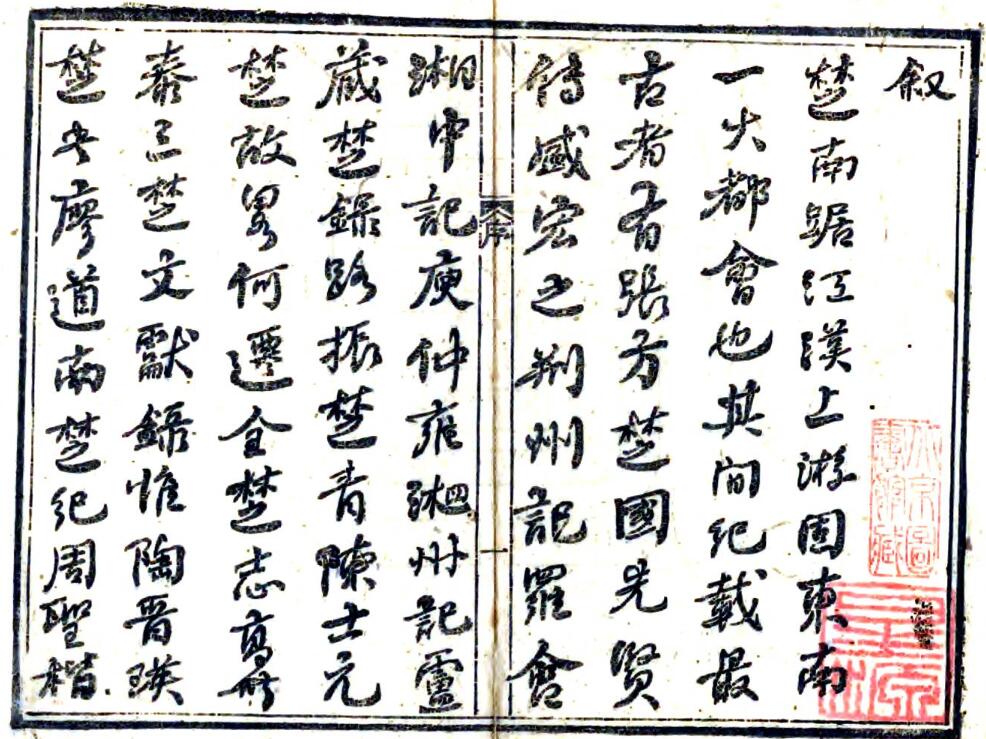 叙
楚南踞江漢上游固東南
一大都會也其間紀載最
古者有張方楚國先賢
傳盛宏之荊州記羅含
序
一
湘中記庾仲雍湘州記盧
藏楚錄路振楚青陳士元
楚故畧何遷全楚志高世
泰三楚文獻錄惟陶晋瑛
楚史廖道南楚紀周聖楷